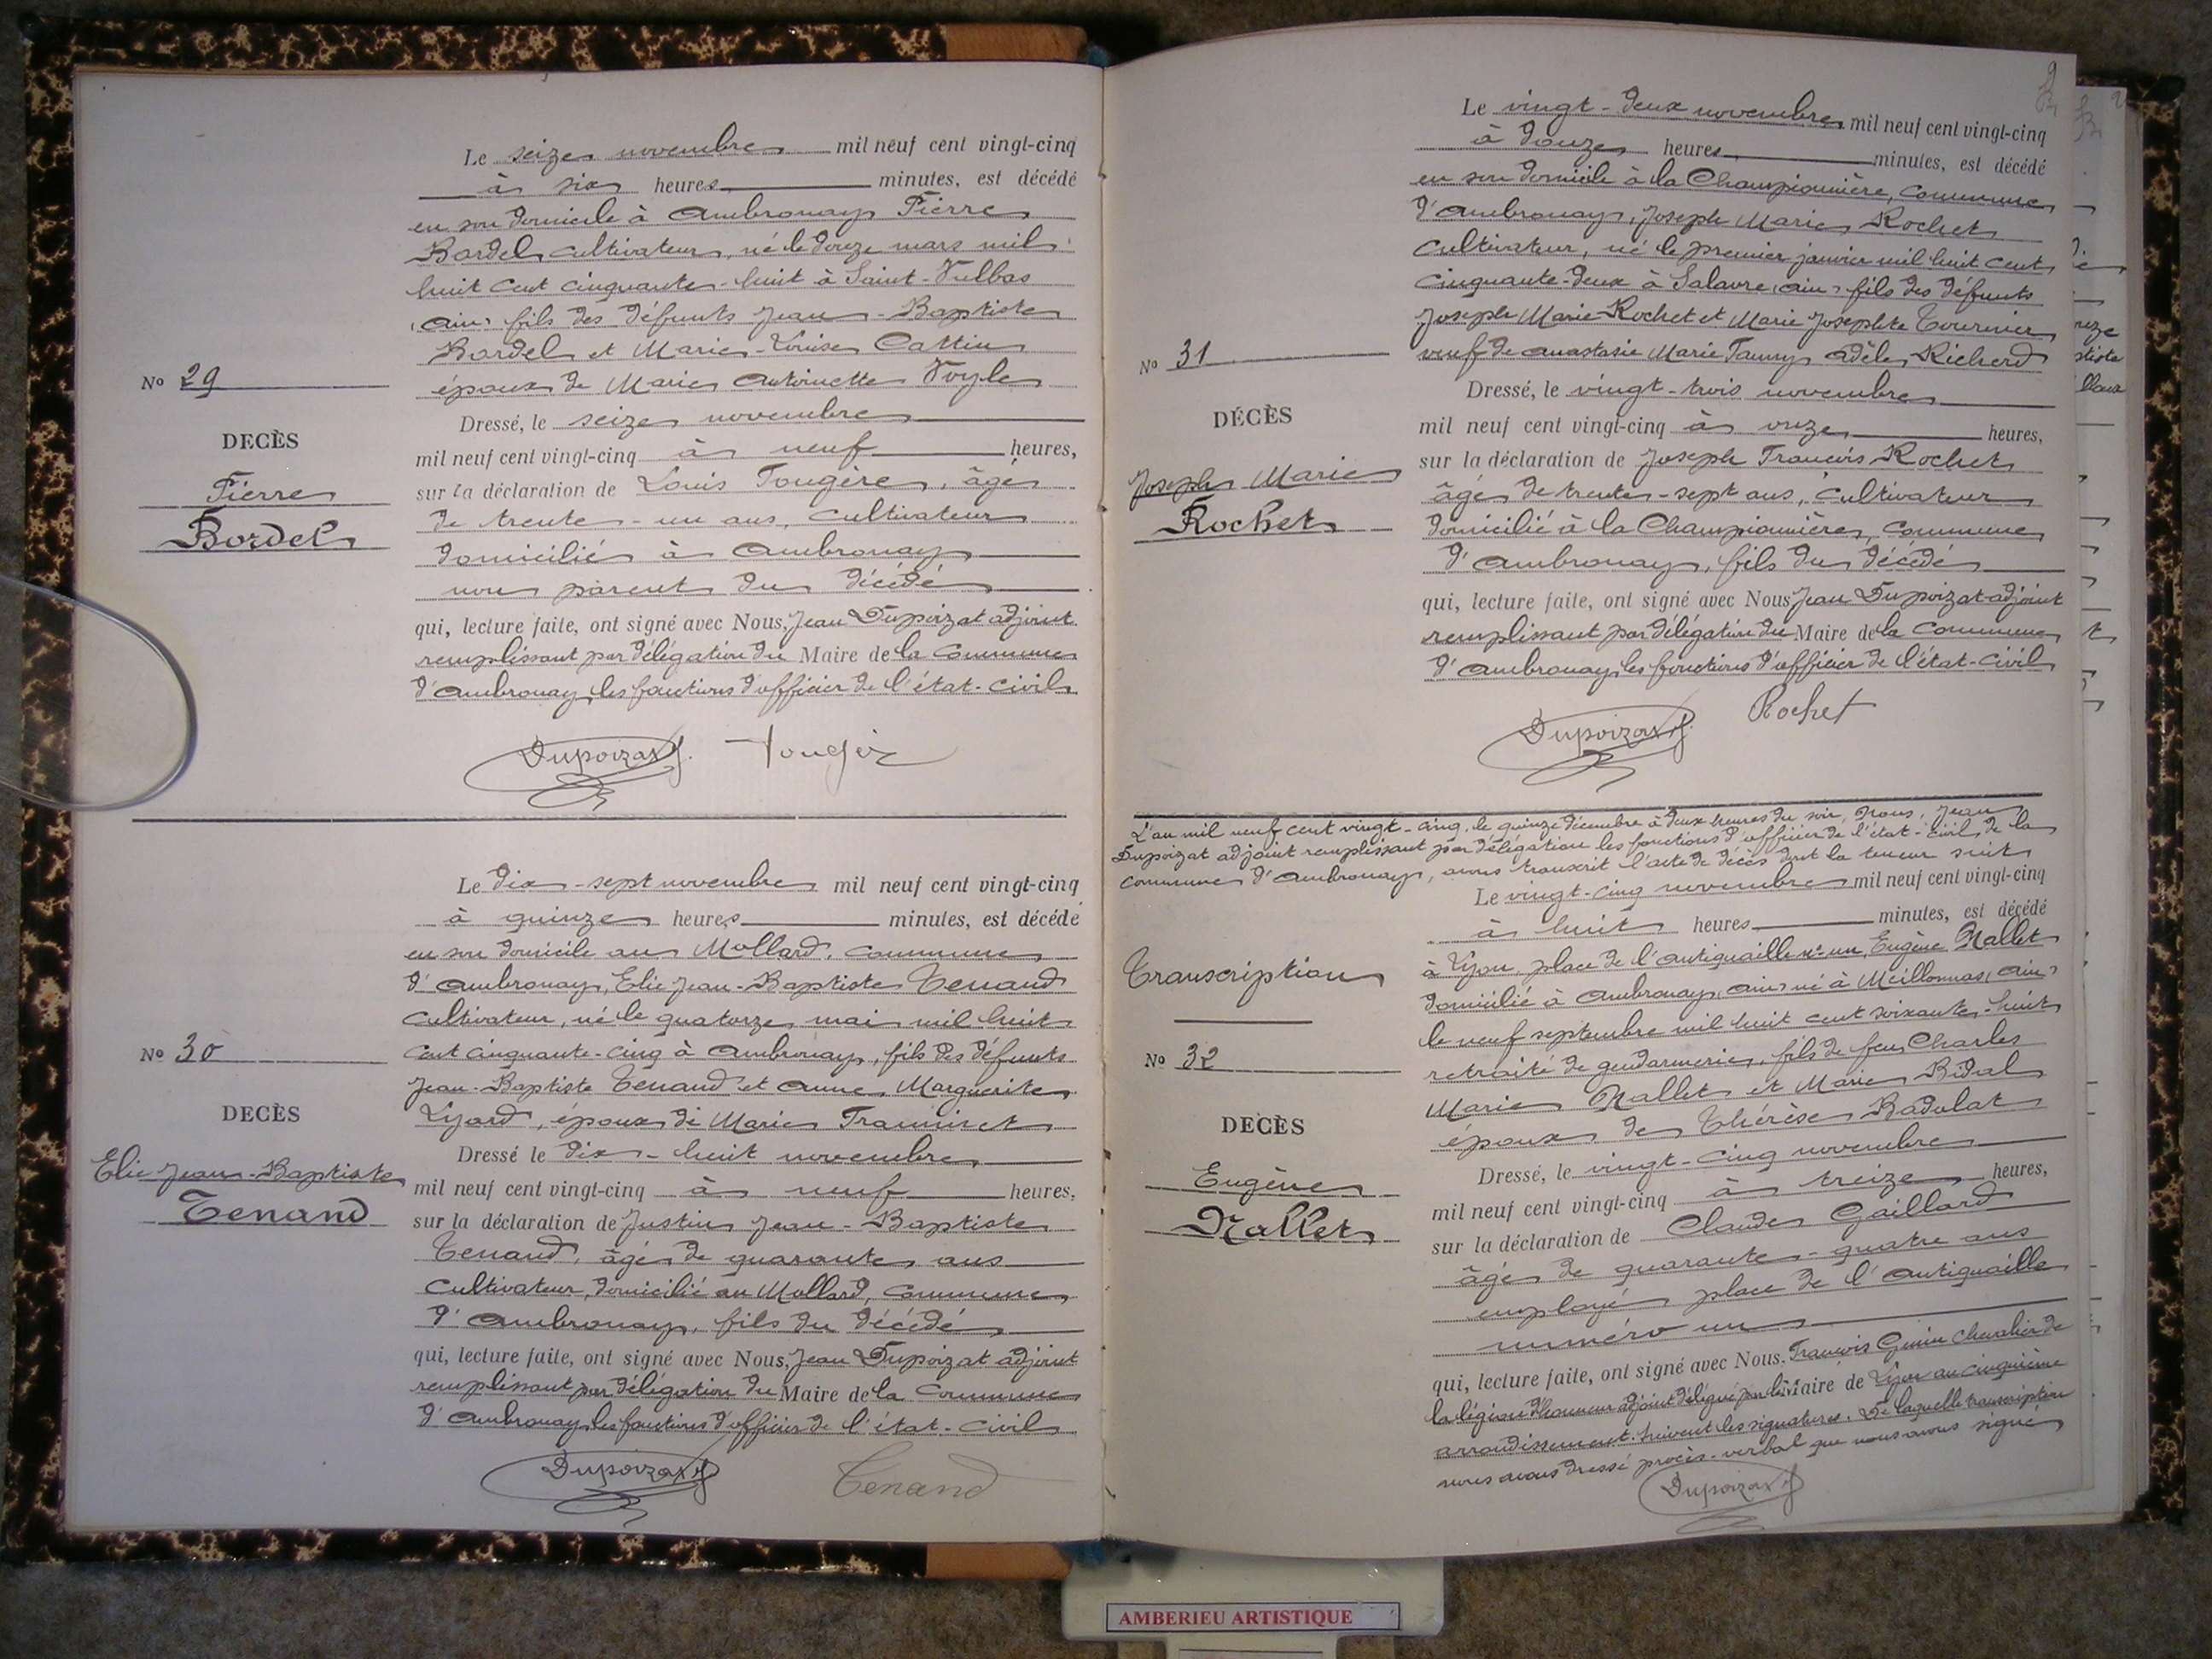 Le seize novembre mil neuf cent vingt-cinq
à six heures minutes, est décédé
en son domicile à Ambronay Pierre
Bordel cultivateur, né le douze mars mil
huit cent cinquante-huit à Saint-Vulbas
(Ain) fils des défunts Jean-Baptiste
Bordel et Marie-Louise Cattin
époux de Marie Antoinette Voyle
No 29
DECÈS
Pierre
Bordel
Dressé, le seize novembre
mil neuf cent vingt-cinq à neuf heures,
sur la déclaration de Louis Fougère, âgé
de trente-un ans, cultivateur
domicilié à Ambronay
non parent du décédé
qui, lecture faite, ont signé avec Nous, Jean Dupoizat adjoint
remplissant par délégation du Maire de la Commune
d'Ambronay les fonctions d'officier de l'état-civil
Dupoizat J. Fougère
Le dix-sept novembre mil neuf cent vingt-cinq
à quinze heures minutes, est décédé
en son domicile au Mollard, commune
d'Ambronay, Elie Jean-Baptiste Tenand
cultivateur, né le quatorze mai mil huit
cent cinquante-cinq à Ambronay, fils des défunts
Jean-Baptiste Tenand et Anne, Marguerite
Lyard, époux de Marie
No 30
DECÈS
Elie Jean-Baptiste
Tenand
Dressé le dix-huit novembre
mil neuf cent vingt-cinq à neuf heures,
sur la déclaration de Justin Jean-Baptiste
Tenand, âgé de quarante ans
cultivateur, domicilié au Mollard, commune
d'Ambronay, fils du décédé
qui, lecture faite, ont signé avec Nous, Jean Dupoizat adjoint
remplissant par délégation du Maire de la Commune
d'Ambronay les fonctions d'officier de l'état-civil
Dupoizat J. Tenand
Le vingt-deux novembre mil neuf cent vingt-cinq
à douze heures minutes, est décédé
en son domicile à la Championnière, commune
d'Ambronay, Joseph Marie Rochet
cultivateur, né le premier janvier mil huit cent
cinquante-deux à Salavre (Ain) fils des défunts
Joseph Marie Rochet et Marie Josephte Tournier
veuf de Anastasie Marie Fanny Adèle Richerd
No 31
DÉCÈS
Joseph Marie
Rochet
Dressé, le vingt-trois novembre
mil neuf cent vingt-cinq à onze heures,
sur la déclaration de Joseph François Rochet
âgé de trente-sept ans, cultivateur
domicilié à la Championnière, commune
d'Ambronay, fils du décédé
qui, lecture faite, ont signé avec Nous Jean Dupoizat adjoint
remplissant par délégation du Maire de la Commune
d'Ambronay les fonctions d'officier de l'état-civil
Dupoizat J. Rochet
L'an mil neuf cent vingt-cinq, le quinze décembre à deux heures du soir, Nous, Jean
Dupoizat adjoint remplissant par délégation les fonctions d'officier de l'état-civil de la
commune d'Ambronay, avons transcrit l'acte de décès dont la teneur suit
Le vingt-cinq novembre mil neuf cent vingt-cinq
à huit heures minutes, est décédé
à Lyon, place de l'Antiquaille no un, Eugène Nallet
domicilié à Ambronay (Ain) né à Meillonnas (Ain)
le neuf septembre mil huit cent soixante-huit
retraité de gendarmerie, fils de feu Charles
Marie Nallet et Marie Bidal
époux de Thérèse Badolat
Transcription
No 32
DECÈS
Eugène
Nallet
Dressé, le vingt-cinq novembre
mil neuf cent vingt-cinq à treize heures,
sur la déclaration de Claude Gaillard
âgé de quarante-quatre ans
employé place de l'Antiquaille
numéro un
qui, lecture faite, ont signé avec Nous. François Genin Chevalier de
la légion d'honneur adjoint délégué par le Maire de Lyon au cinquième
arrondissement. Suivent les signatures. De laquelle transcription
nous avons dressé procès-verbal que nous avons signé
Dupoizat J
AMBERIEU ARTISTIQUE